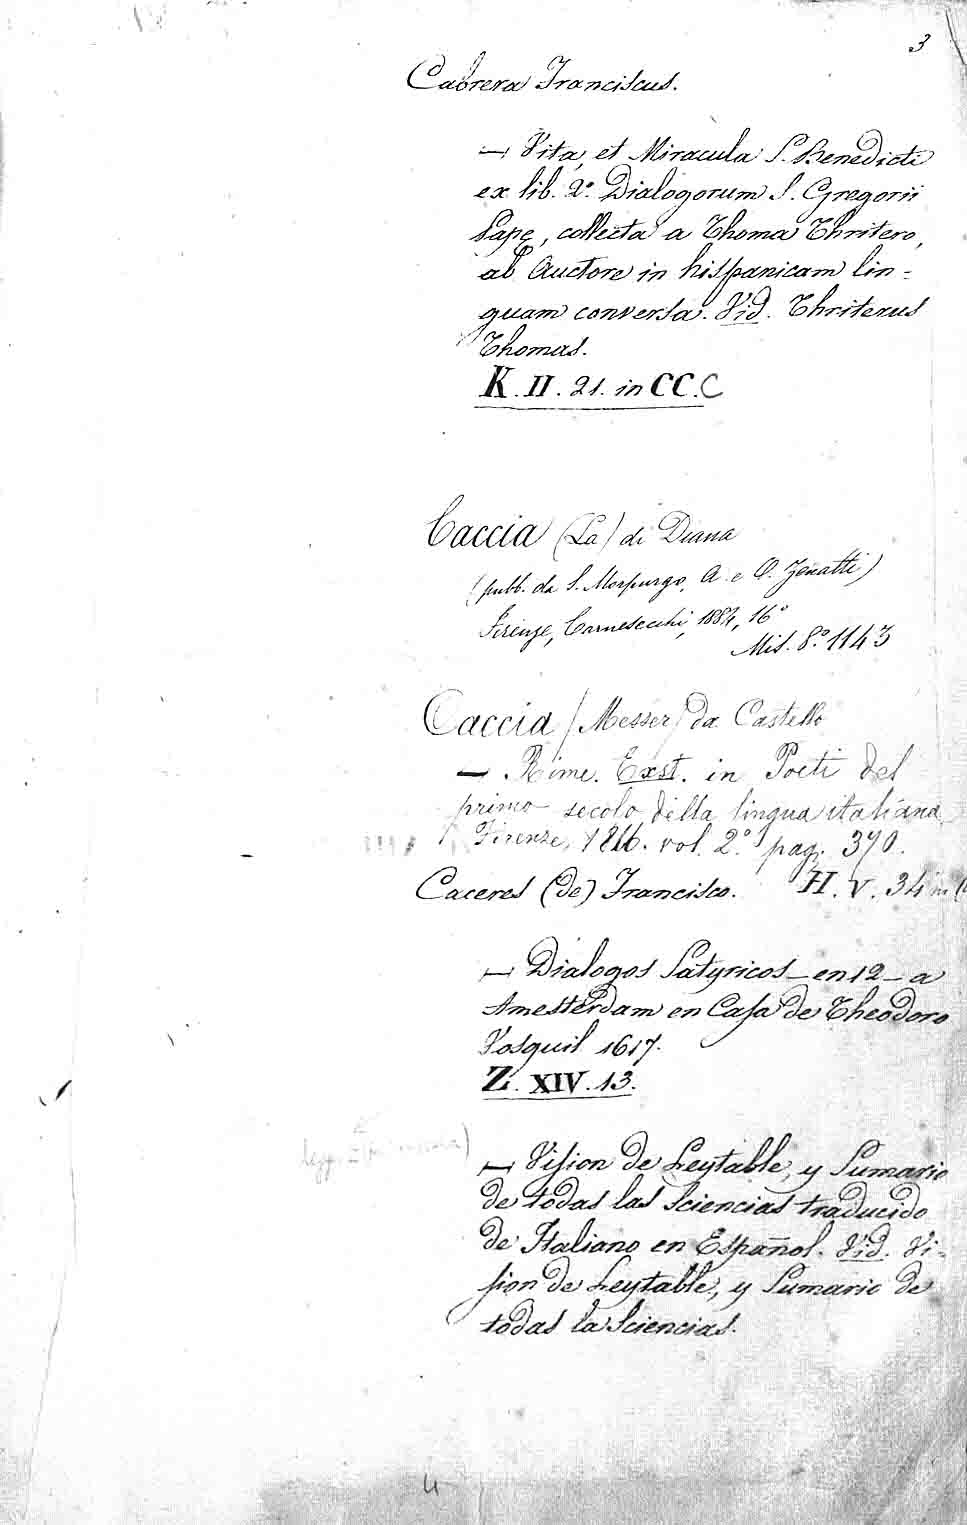 3
Cabrera Franciscus.
— Vita, et Miracula S. Benedicti
ex lib. 2.º Dialogorum S. Gregorii
Papę, collecta a Thoma Thritero,
ab Auctore in hispanicam lin=
guam conversa. Vid. Thriterus
Thomas.
K. II. 21. in CC.C
Caccia (La) di Diana
(pubb. da S. Morpurgo, A. e O. Zenatti)
Firenze, Carnesecchi, 1884, 16º
Mis. 8.º 1143
Caccia (Messer) da Castello
— Rime. Exst. in Poeti del
primo secolo della lingua italiana
Firenze, 1816. vol. 2.º pag. 370.
H. V. 34 in
Caceres (de) Francisco.
— Dialogos Satyricos - en 12 - a
Amesterdam en Casa de Theodoro
Vosquil 1617.
Z. XIV. 13.
— Vision de Leytable, y Sumario
de todas las Sciencias traducido
de Italiano en Español. Vid. Vi-
sion de Leytable, y Sumario de
todas la Sciencias.
4